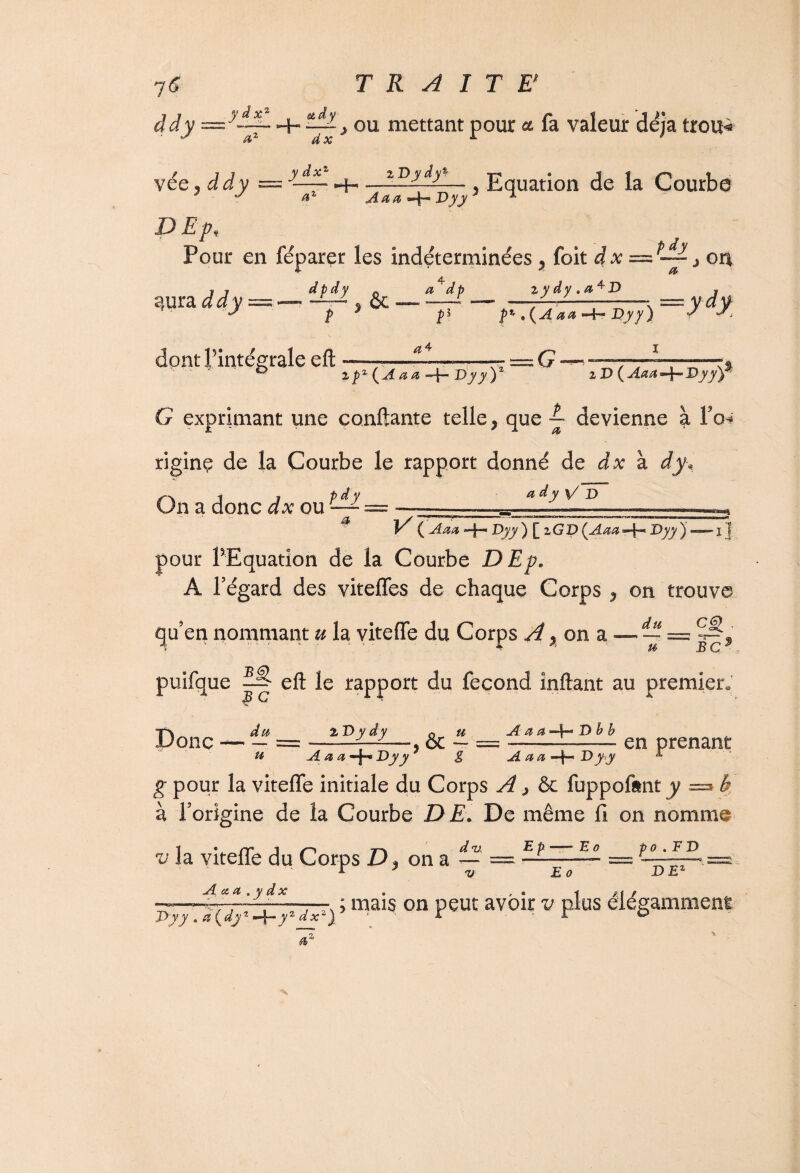 76 TRAITE'
ddy = y dx²/a² + α dy/dx, ou mettant pour α ſa valeur déja trou-
vée, ddy = y dx²/a² + 2Dydy²/(Aaa + Dyy), Equation de la Courbe
DEp.
Pour en ſéparer les indéterminées, ſoit dx = pdy/a, on
aura ddy = — dpdy/p, & — a⁴dp/p³ — 2ydy.a⁴D/(p².(Aaa + Dyy)) = ydy
dont l'intégrale eſt a⁴/(2p²(Aaa + Dyy)²) = G — 1/(2D(Aaa + Dyy)),
G exprimant une conſtante telle, que p/a devienne à l'o-
rigine de la Courbe le rapport donné de dx à dy.
On a donc dx ou pdy/a = ady√D/√((Aaa + Dyy)[2GD(Aaa + Dyy) — 1]
pour l'Equation de la Courbe DEp.
A l'égard des viteſſes de chaque Corps, on trouve
qu'en nommant u la viteſſe du Corps A, on a — du/u = CQ/BC,
puiſque BQ/BC eſt le rapport du ſecond inſtant au premier.
Donc — du/u = 2Dydy/(Aaa + Dyy), & u/g = (Aaa + Dbb)/(Aaa + Dyy) en prenant
g pour la viteſſe initiale du Corps A, & ſuppoſant y = b
à l'origine de la Courbe DE. De même ſi on nomme
v la viteſſe du Corps D, on a dv/v = (Ep — Eo)/Eo = po.FD/DE² =
Aαa.ydx/(Dyy.a(dy² + y²dx²/a²)); mais on peut avoir v plus élégamment